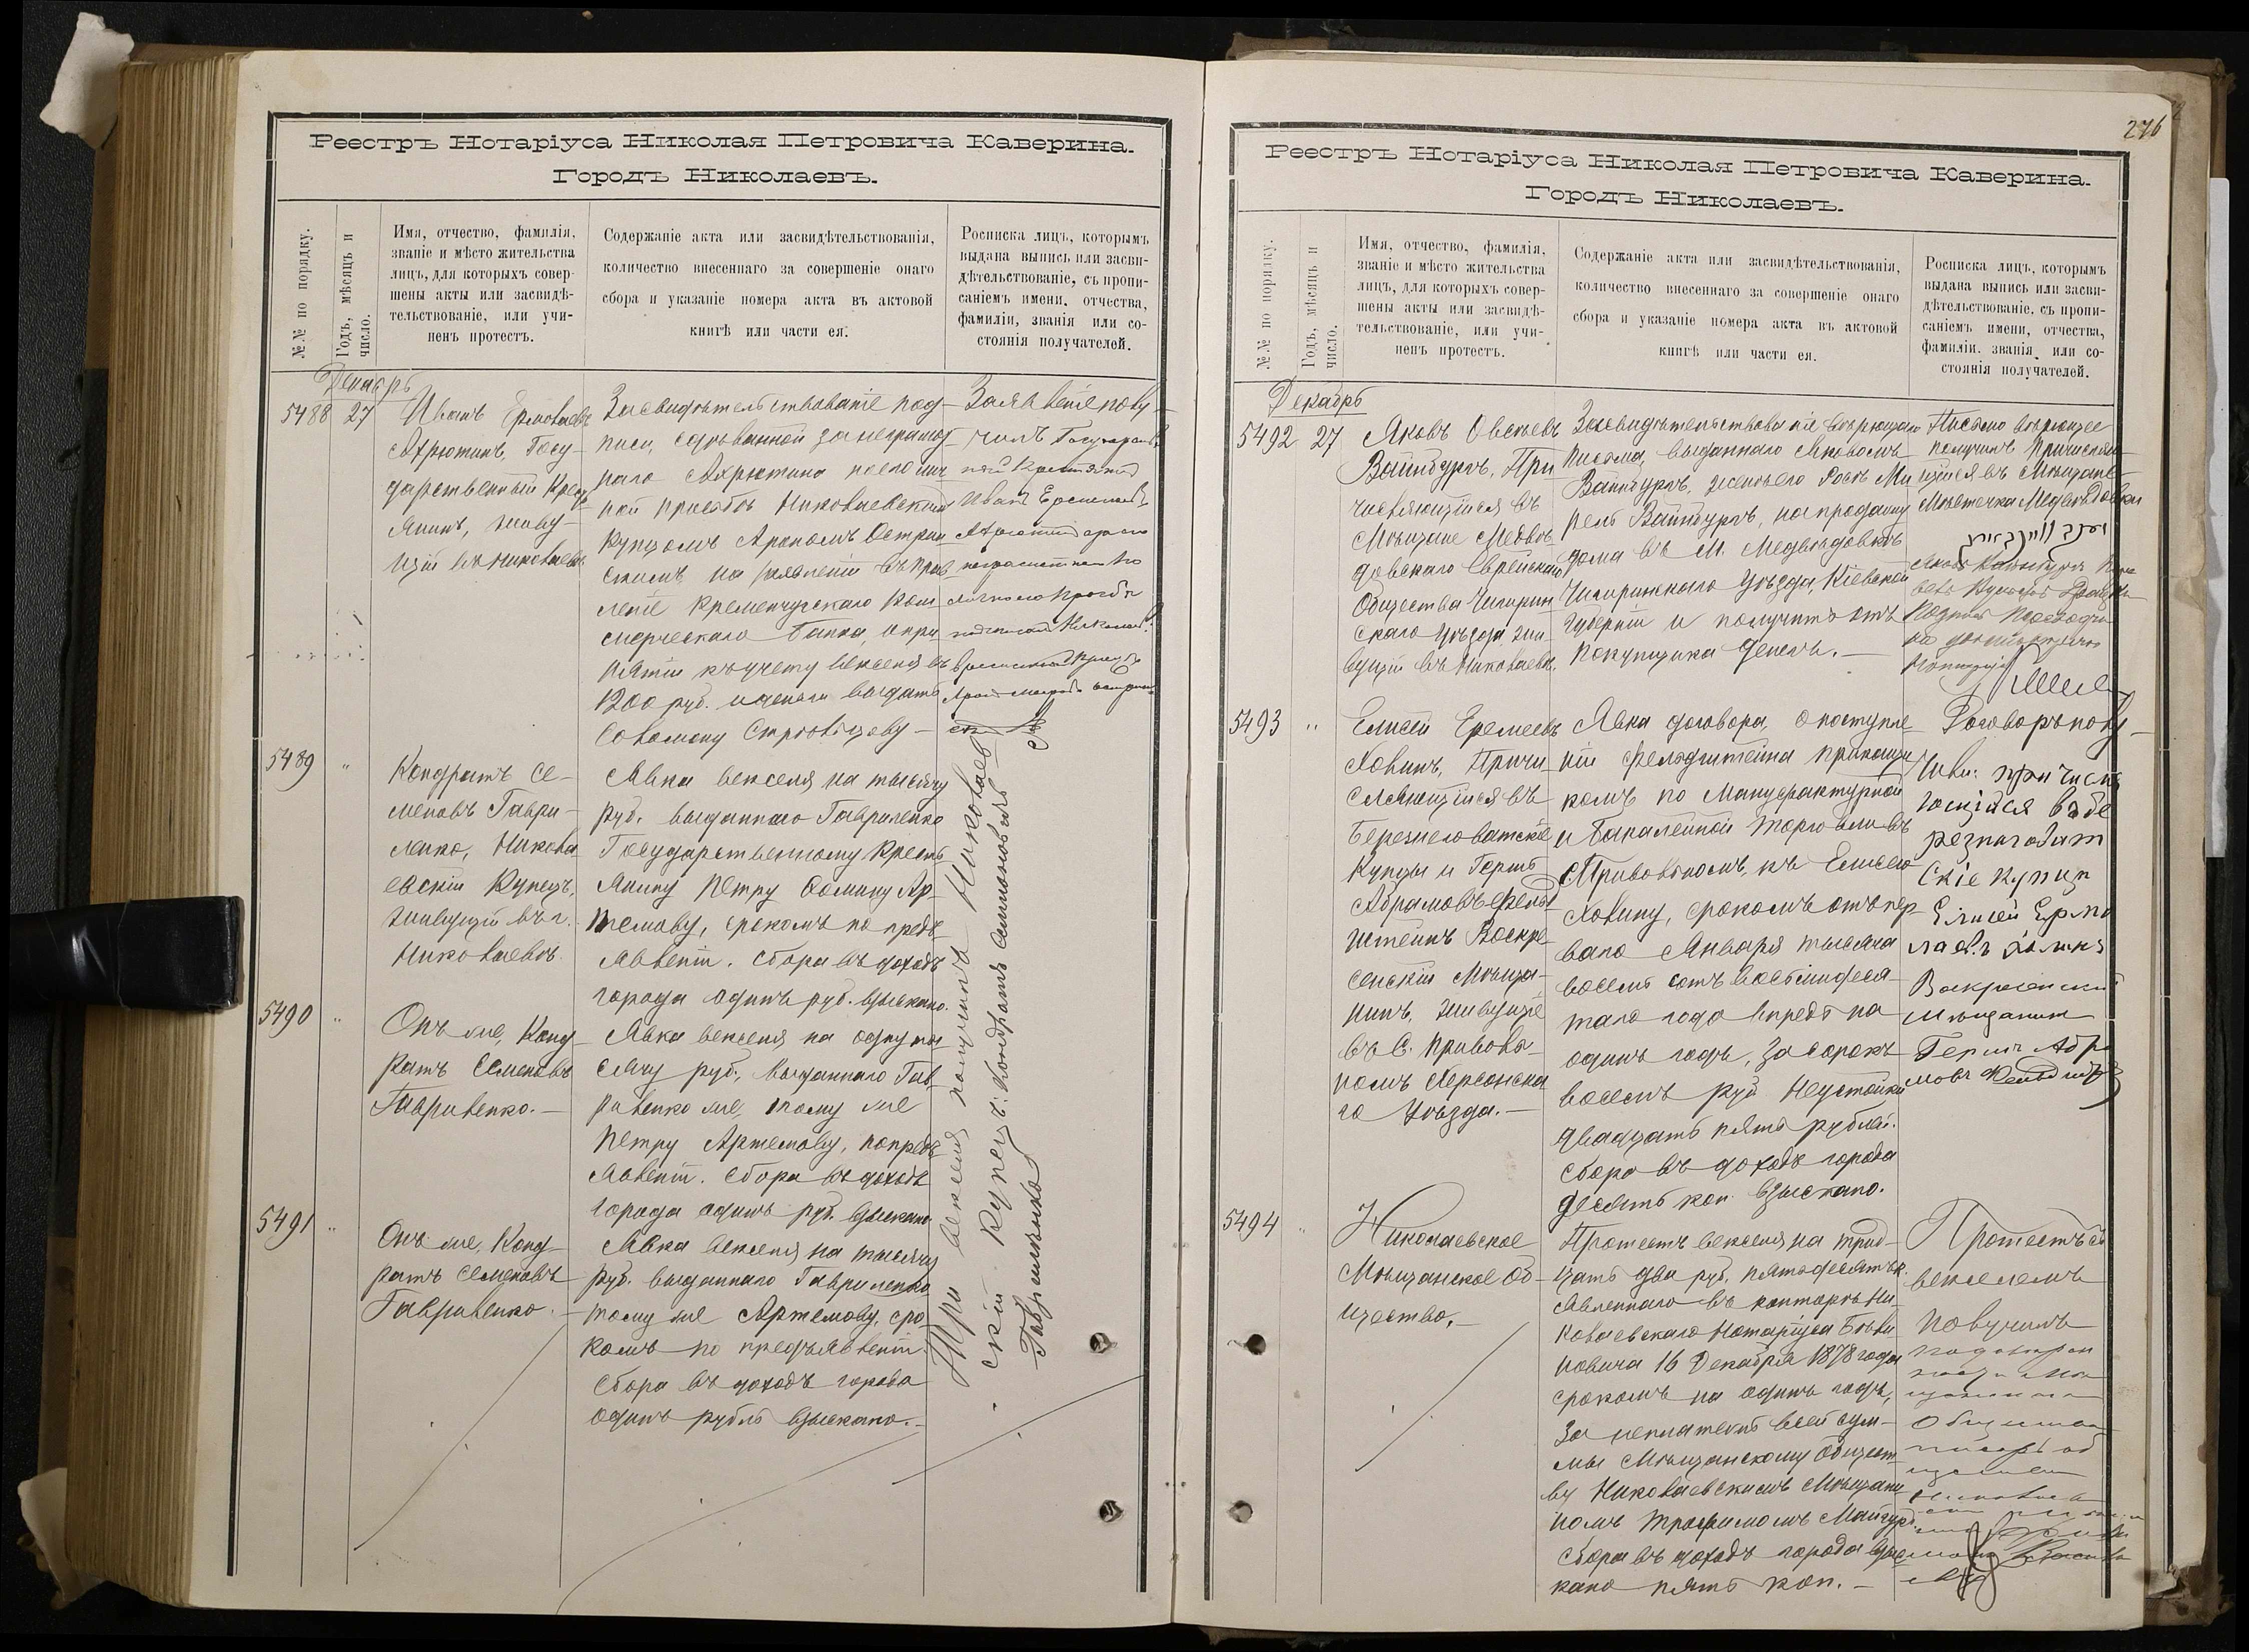 Реестръ Нотаріуса Николая Петровича Каверина.
Городъ Николаевъ.
№№ по порядку.
Годъ, мѣсяцъ и
число.
Имя, отчество, фамилія,
званіе и мѣсто жительства
лицъ, для которыхъ совер-
шены акты или засвидѣ-
тельствованіе, или учи-
ненъ протестъ.
Содержаніе акта или засвидѣтельствованія,
количество внесеннаго за совершеніе онаго
сбора и указаніе номера акта въ актовой
книгѣ или части ея.
Росписка лицъ, которымъ
выдана выпись или засви-
дѣтельствованіе, съ пропи-
саніемъ имени, отчества,
фамиліи, званія или со-
стоянія получателей.
Декабрь
5488 27
Иванъ Ермолаевъ
Ахрютинъ, Госу-
дарственный Крест
янинъ, живу-
щій въ Николаевѣ
Засвидѣтельствованіе под-
писи, сдѣланной за неграмот
наго Ахрютина по его лич
ной просьбѣ Николаевскимъ
Купцомъ Арономъ Остри
скимъ, на заявленіи въ Прав
леніе Кременчугскаго Ком
мерческаго Банка, о при
нятіи къ учету векселя въ
1200 руб. и деньги выдать
Соломону Стрѣльцову —
Заявленіе полу-
чилъ Государствен
ный Крестянинъ
Иванъ
5489 "
Кондратъ Се-
меновъ Гаври-
ленко, Никола
евскій Купецъ,
живущій въ г.
Николаевѣ.
Явка векселя на тысячу
руб. выданнаго Гавриленко
Государственному Кресть
янину Петру Фомину Ар-
темову, срокомъ по предъ
явленіи. Сбора въ доходъ
города одинъ руб. взыскано.
5490 "
Онъ же, Конд-
ратъ Семеновъ
Гавриленко. —
Явка векселя на одну ты
сячу руб., выданнаго Гав
риленко же, тому же
Петру Артемову, по предъ
явленіи. Сбора въ доходъ
города одинъ руб. взыскано
5491 "
Онъ же, Конд-
ратъ Семеновъ
Гавриленко. —
Явка векселя на тысячу
руб. выданнаго Гавриленко
тому же Артемову, сро
комъ по предъявленіи.
Сбора въ доходъ города
одинъ рубль взыскано. —
Три векселя получилъ Николаев
скій Купецъ: Кондратъ Симоновичъ
Гавриленко
276
Реестръ Нотаріуса Николая Петровича Каверина.
Городъ Николаевъ.
№№ по порядку.
Годъ, мѣсяцъ и
число.
Имя, отчество, фамилія,
званіе и мѣсто жительства
лицъ, для которыхъ совер-
шены акты или засвидѣ-
тельствованіе, или учи-
ненъ протестъ.
Содержаніе акта или засвидѣтельствованія,
количество внесеннаго за совершеніе онаго
сбора и указаніе номера акта въ актовой
книгѣ или части ея.
Росписка лицъ, которымъ
выдана выпись или засви-
дѣтельствованіе, съ пропи-
саніемъ имени, отчества,
фамиліи, званія или со-
стоянія получателей.
Декабрь
5492 27
Яковъ Овсѣевъ
Вайнбургъ, При
числяющійся въ
Мѣщане Медвѣ
довскаго Еврейскаго
Общества Чигирин
скаго Уѣзда, жи
вущій въ Николаевѣ.
Засвидѣтельствованіе вѣрющаго
письма, выданнаго Яковомъ
Вайнбургъ, женѣ его Рось Ми
рель Вайнбургъ, на продажу
дома въ М. Медвѣдовкѣ
Чигиринскаго Уѣзда, Кіевской
Губерніи и получить отъ
покупщика денегъ. —
Письмо вѣрющее
получилъ Причисляю
щійся въ Мѣщане
Мѣстечка Медвѣдовки
5493 "
Елисей Еремеевъ
Ховинъ, Причи-
сляющійся въ
Березнеговатскіе
Купцы и Гершъ
Абрамовъ Фельд
штейнъ Воскре-
сенскій Мѣща-
нинъ, живущіе
въ С. Приволь-
номъ Херсонска
го Уѣзда. —
Явка договора, о поступле
ніи Фельдштейна прикащи
комъ по Мануфактурной
и Бакалейной торговли въ
Привольномъ, къ Елисею
Ховину, срокомъ отъ пер
ваго Января тысяча
восемь сотъ восьмидеся-
таго года впредь на
одинъ годъ, за сорокъ
восемь руб. Неустойки
двадцать пять рублей.
Сбора въ доходъ города
десять коп. взыскано.
Договоръ полу-
чили: причисля
ющійся въ бе
резнаговат
скіе купци
Елисей
Воскресенскій
мѣщанинъ
Гершъ Абра
мовъ Фельдштейнъ
5494 "
Николаевское
Мѣщанское Об-
щество. —
Протестъ векселя на трид-
цать два руб. пятьдесятъ к.
явленнаго въ конторѣ Ни-
колаевскаго Нотаріуса Бѣли
новича 16 Декабря 1878 года
срокомъ на одинъ годъ,
за неплатежъ всей сум-
мы Мѣщанскому Общест
ву Николаевскимъ Мѣщани
номъ Трофимомъ
Сбора въ доходъ города взыс
кано пять коп. —
Протестъ съ
векселемъ
получилъ